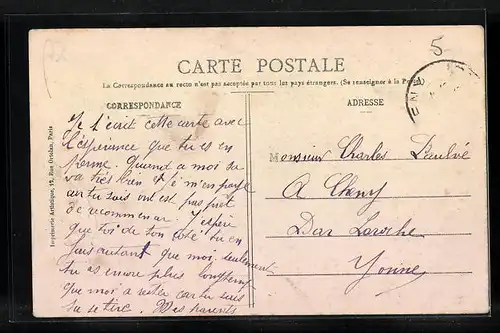 5
CARTE POSTALE
La Correspondance au recto n'est pas acceptée par tous les pays étrangers. (Se renseigner à la Poste)
CORRESPONDANCE
ADRESSE
Imprimerie Artistique, Rue Oriolan, Paris
Je t'écrit cette carte avec
l'espérance que tu es en
perme. Quand a moi sa
va très bien et je m'en paye
car tu sais ont est pas prêt
de recommencer. J'espère
que toi de ton coté tu en
fais autant que moi seulement
tu es encore plus longtemps
que moi a rester car tu sais
sa se tire. Mes parents
Monsieur Charles
A Cheny
Par Laroche
Yonne